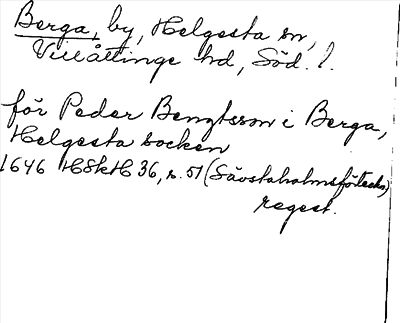 Berga, by, Helgesta sn,
Villåttinge hd, Söd. l.
för Peder Bengtsson i Berga,
Helgesta socken
1646 HSkH 36, s. 51 (Sävstaholmsförteckn,
regest.